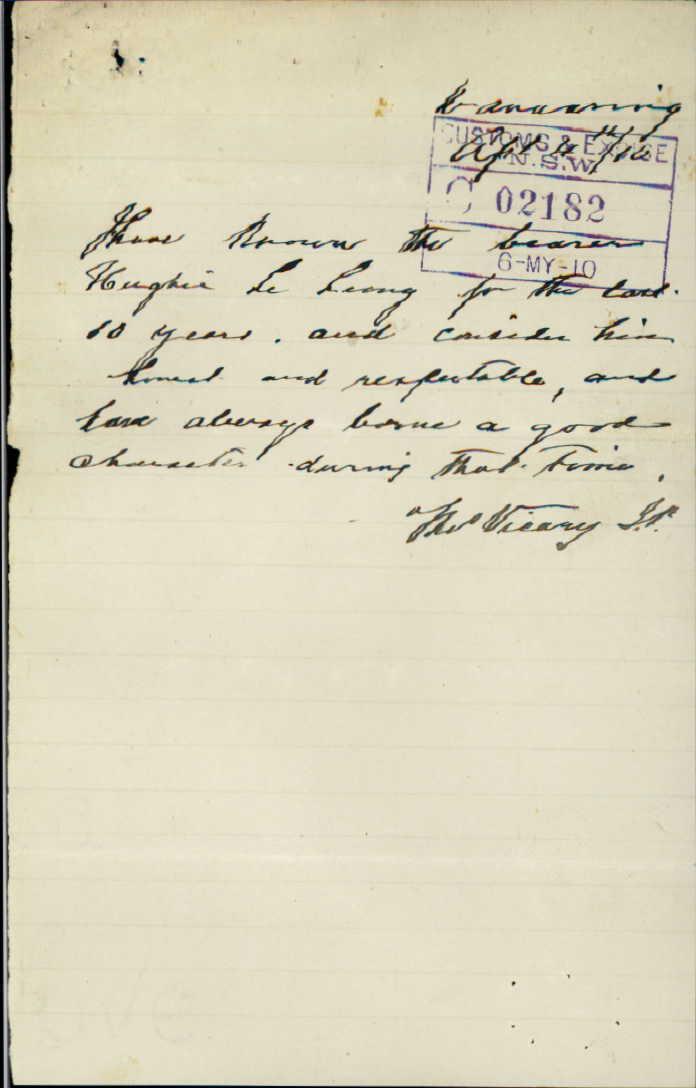 Wanaaring
Apl 4th/10
CUSTOMS & EXCISE
N.S.W.
C 02182
6-MY-10
I have Known the bearer
Hughie Le Leong for the last
10 years. and consider him
honest and respectable, and
have always borne a good
character during that time.
Thos Vicary J.P.